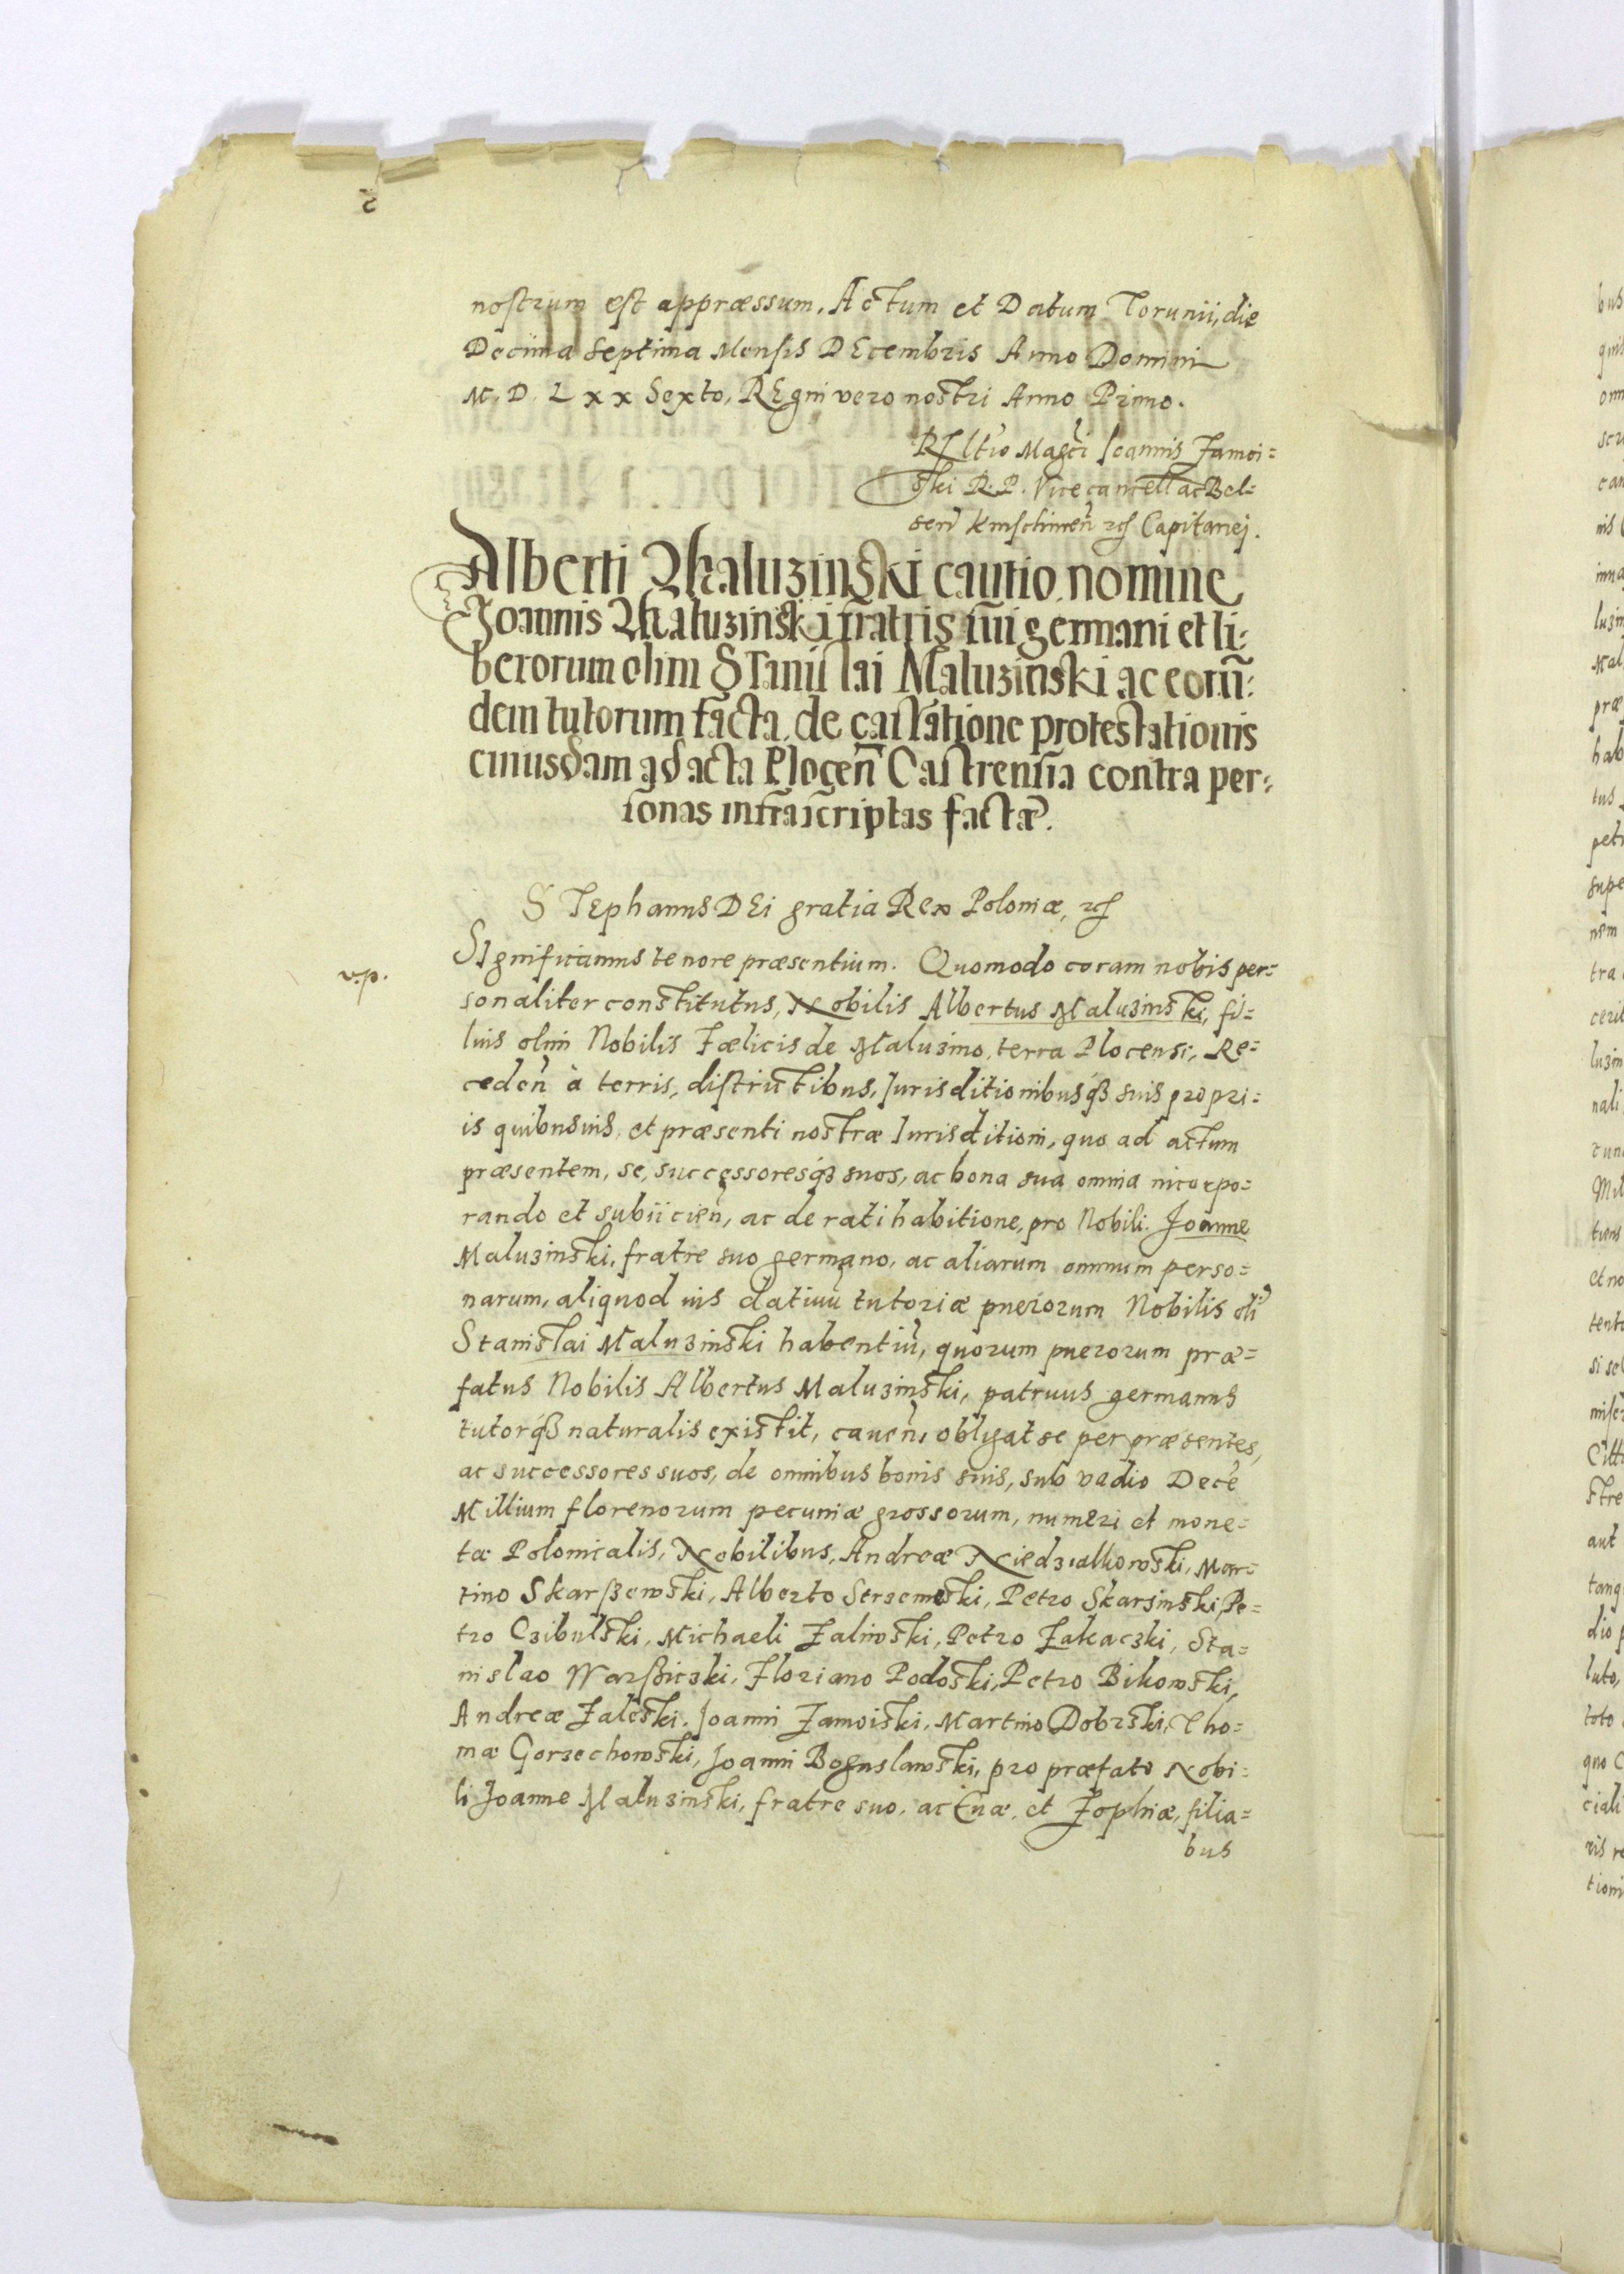 nostrum est appræssum. Actum et Datum Torunii, die
Decima Septima Mensis DEcembris Anno Domini
M. D. Lxx Sexto, REgni vero nostri Anno Primo.
RElti'o Magci Joannis Zamoi=
ski R. P. Vicecancell ac Bel=
sen Knischinen̄ Capitanej.
Alberti Maluzinski cautio nomine
Joannis Maluzinski fratris sui germani et li=
berorum olim STanislai Maluzinski ac eorū=
dem tutorum facta, de cassatione protestationis
cuiusdam ad acta Plocen̄ Castrensia contra per=
sonas infrascriptas factæ.
STEphanus DEi gratia Rex Poloniæ,
v.p.
SIgnificamus tenore præsentium. Quomodo coram nobis per=
sonaliter constitutus, Nobilis Albertus Maluzinski, fi=
lius olim Nobilis Fælicis de Maluzino, terra Plocensi, Re=
ceden̄ à terris, districtibus, Jurisditionibusq₃ suis propri=
is quibusuis, et præsenti nostræ Jurisditioni, quo ad actum
præsentem, se, successoresq₃ suos, ac bona sua omnia incorpo=
rando et subiicien̄, ac de rati habitione, pro Nobili Joanne
Maluzinski, fratre suo germano, ac aliarum omnium perso=
narum, aliquod ius datiuū tutoriæ puerorum Nobilis oli
Stanislai Maluzinski habentiū, quorum puerorum præ=
fatus Nobilis Albertus Maluzinski, patruus germanus
tutorq₃ naturalis existit, cauen̄, obligat se per præsentes,
ac successores suos, de omnibus bonis suis, sub vadio Decē
Millium florenorum pecuniæ grossorum, numeri et mone=
tæ Polonicalis, Nobilibus, Andreæ Niedzialkowski, Mar=
tino Skarßewski, Alberto Strzemeski, Petro Skarzinski, Pe=
tro Czibulski, Michaeli Zaliwski, Petro Zakaczki, Sta=
nislao Warßiczki, Floriano Podoski, Petro Bikowski,
Andreæ Zaleski, Joanni Zamoiski, Martino Dobrski, Tho=
mæ Gorzechowski, Joanni Boguslawski, pro præfato Nobi=
li Joanne Maluzinski, fratre suo, ac Euæ, et Zophiæ, filia=
bus